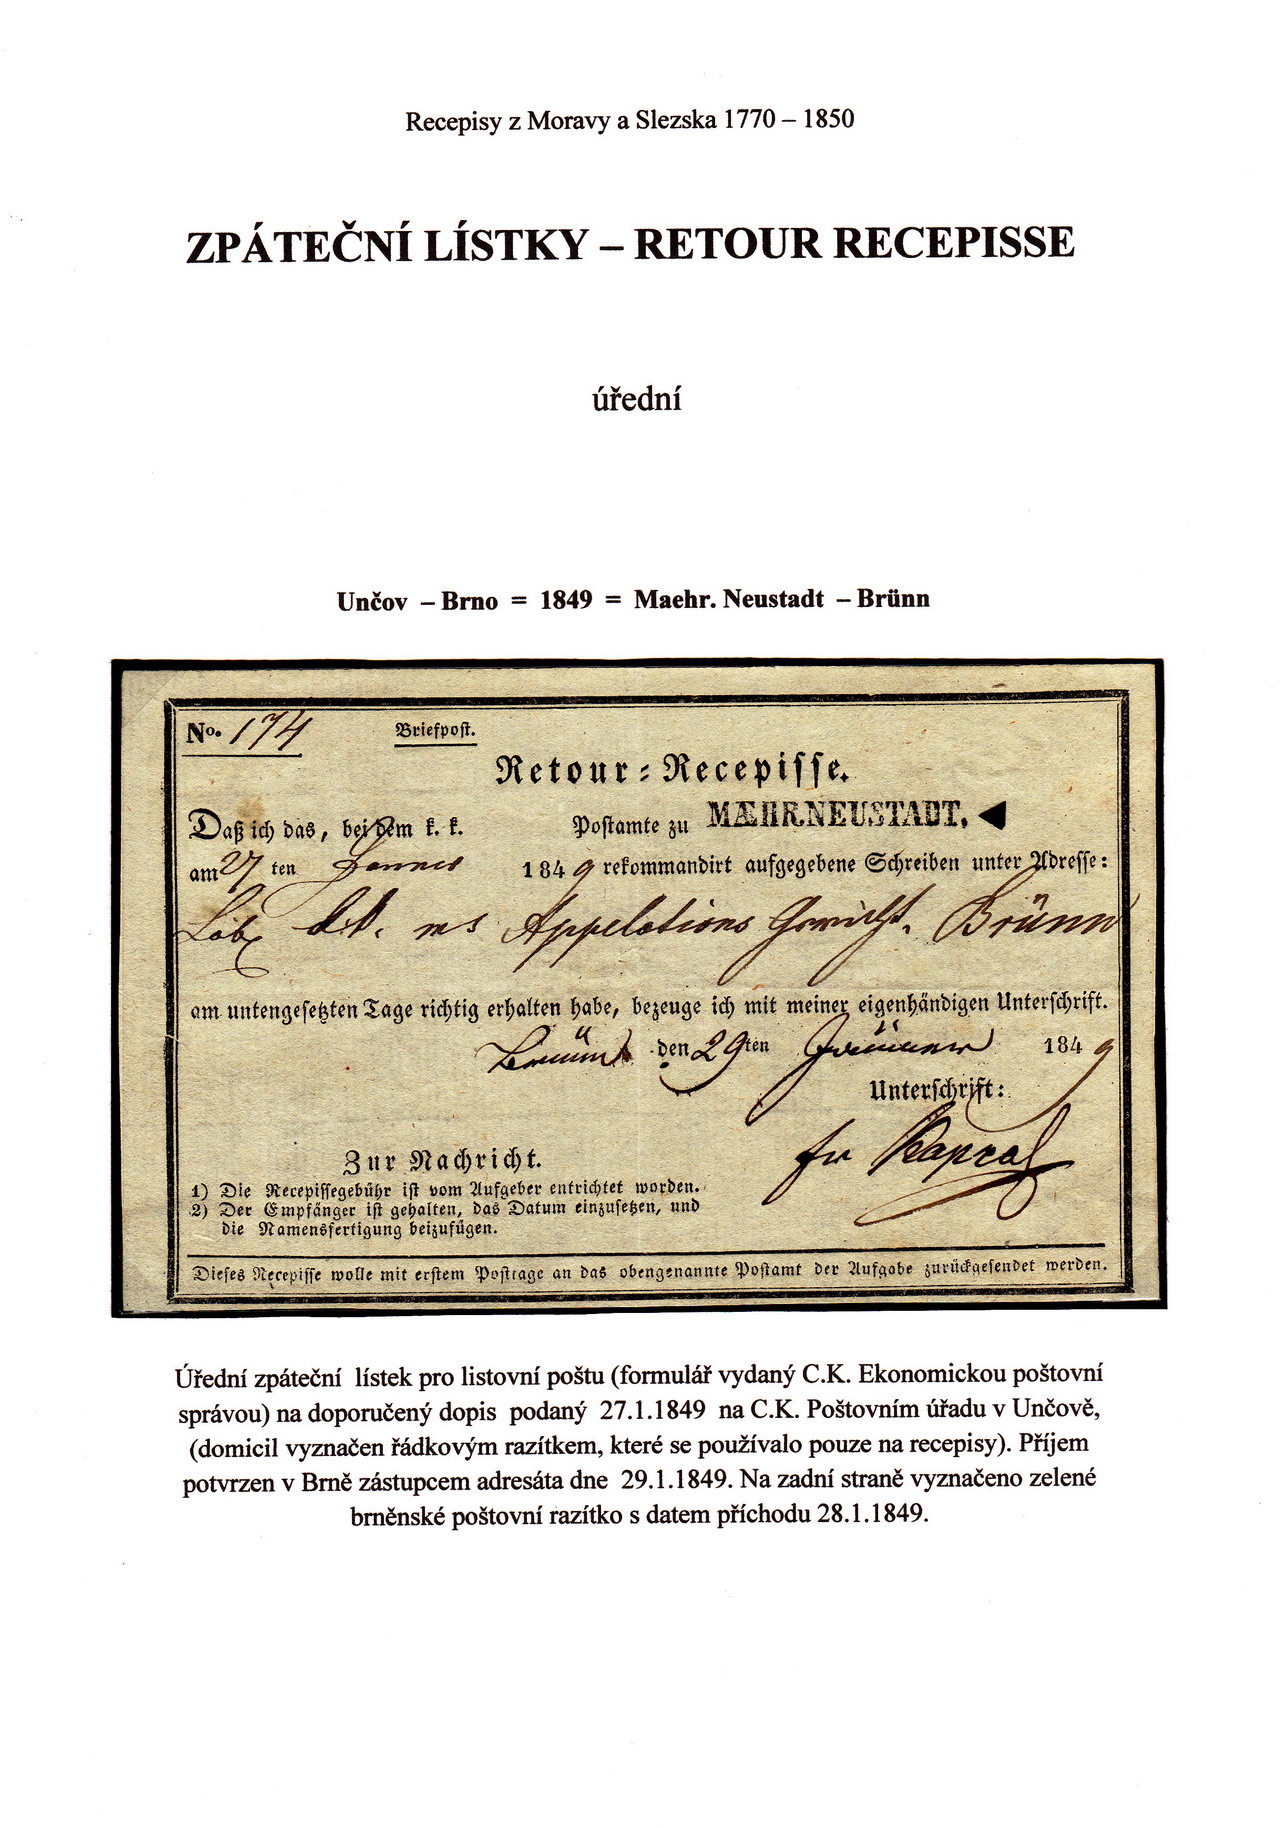 Recepisy z Moravy a Slezska 1770 – 1850
ZPÁTEČNÍ LÍSTKY – RETOUR RECEPISSE
úřední
Unčov – Brno = 1849 = Maehr. Neustadt – Brünn
No. 174 Briefpost.
Retour-Recepisse.
Daß ich das, bei dem k. k. Postamte zu MÆHR.NEUSTADT.
am 27 ten Jänner 1849 rekommandirt aufgegebene Schreiben unter Adresse:
Löbl. Appelations Gericht. Brünn
am untengesetzten Tage richtig erhalten habe, bezeuge ich mit meiner eigenhändigen Unterschrift.
Brünn den 29ten Jänner 1849
Unterschrift:
Kapral
Zur Nachricht.
1) Die Recepissegebühr ist vom Aufgeber entrichtet worden.
2) Der Empfänger ist gehalten, das Datum einzusetzen, und
die Namensfertigung beizufügen.
Dieses Recepisse wolle mit erstem Posttage an das obengenannte Postamt der Aufgabe zurückgesendet werden.
Úřední zpáteční lístek pro listovní poštu (formulář vydaný C.K. Ekonomickou poštovní
správou) na doporučený dopis podaný 27.1.1849 na C.K. Poštovním úřadu v Unčově,
(domicil vyznačen řádkovým razítkem, které se používalo pouze na recepisy). Příjem
potvrzen v Brně zástupcem adresáta dne 29.1.1849. Na zadní straně vyznačeno zelené
brněnské poštovní razítko s datem příchodu 28.1.1849.